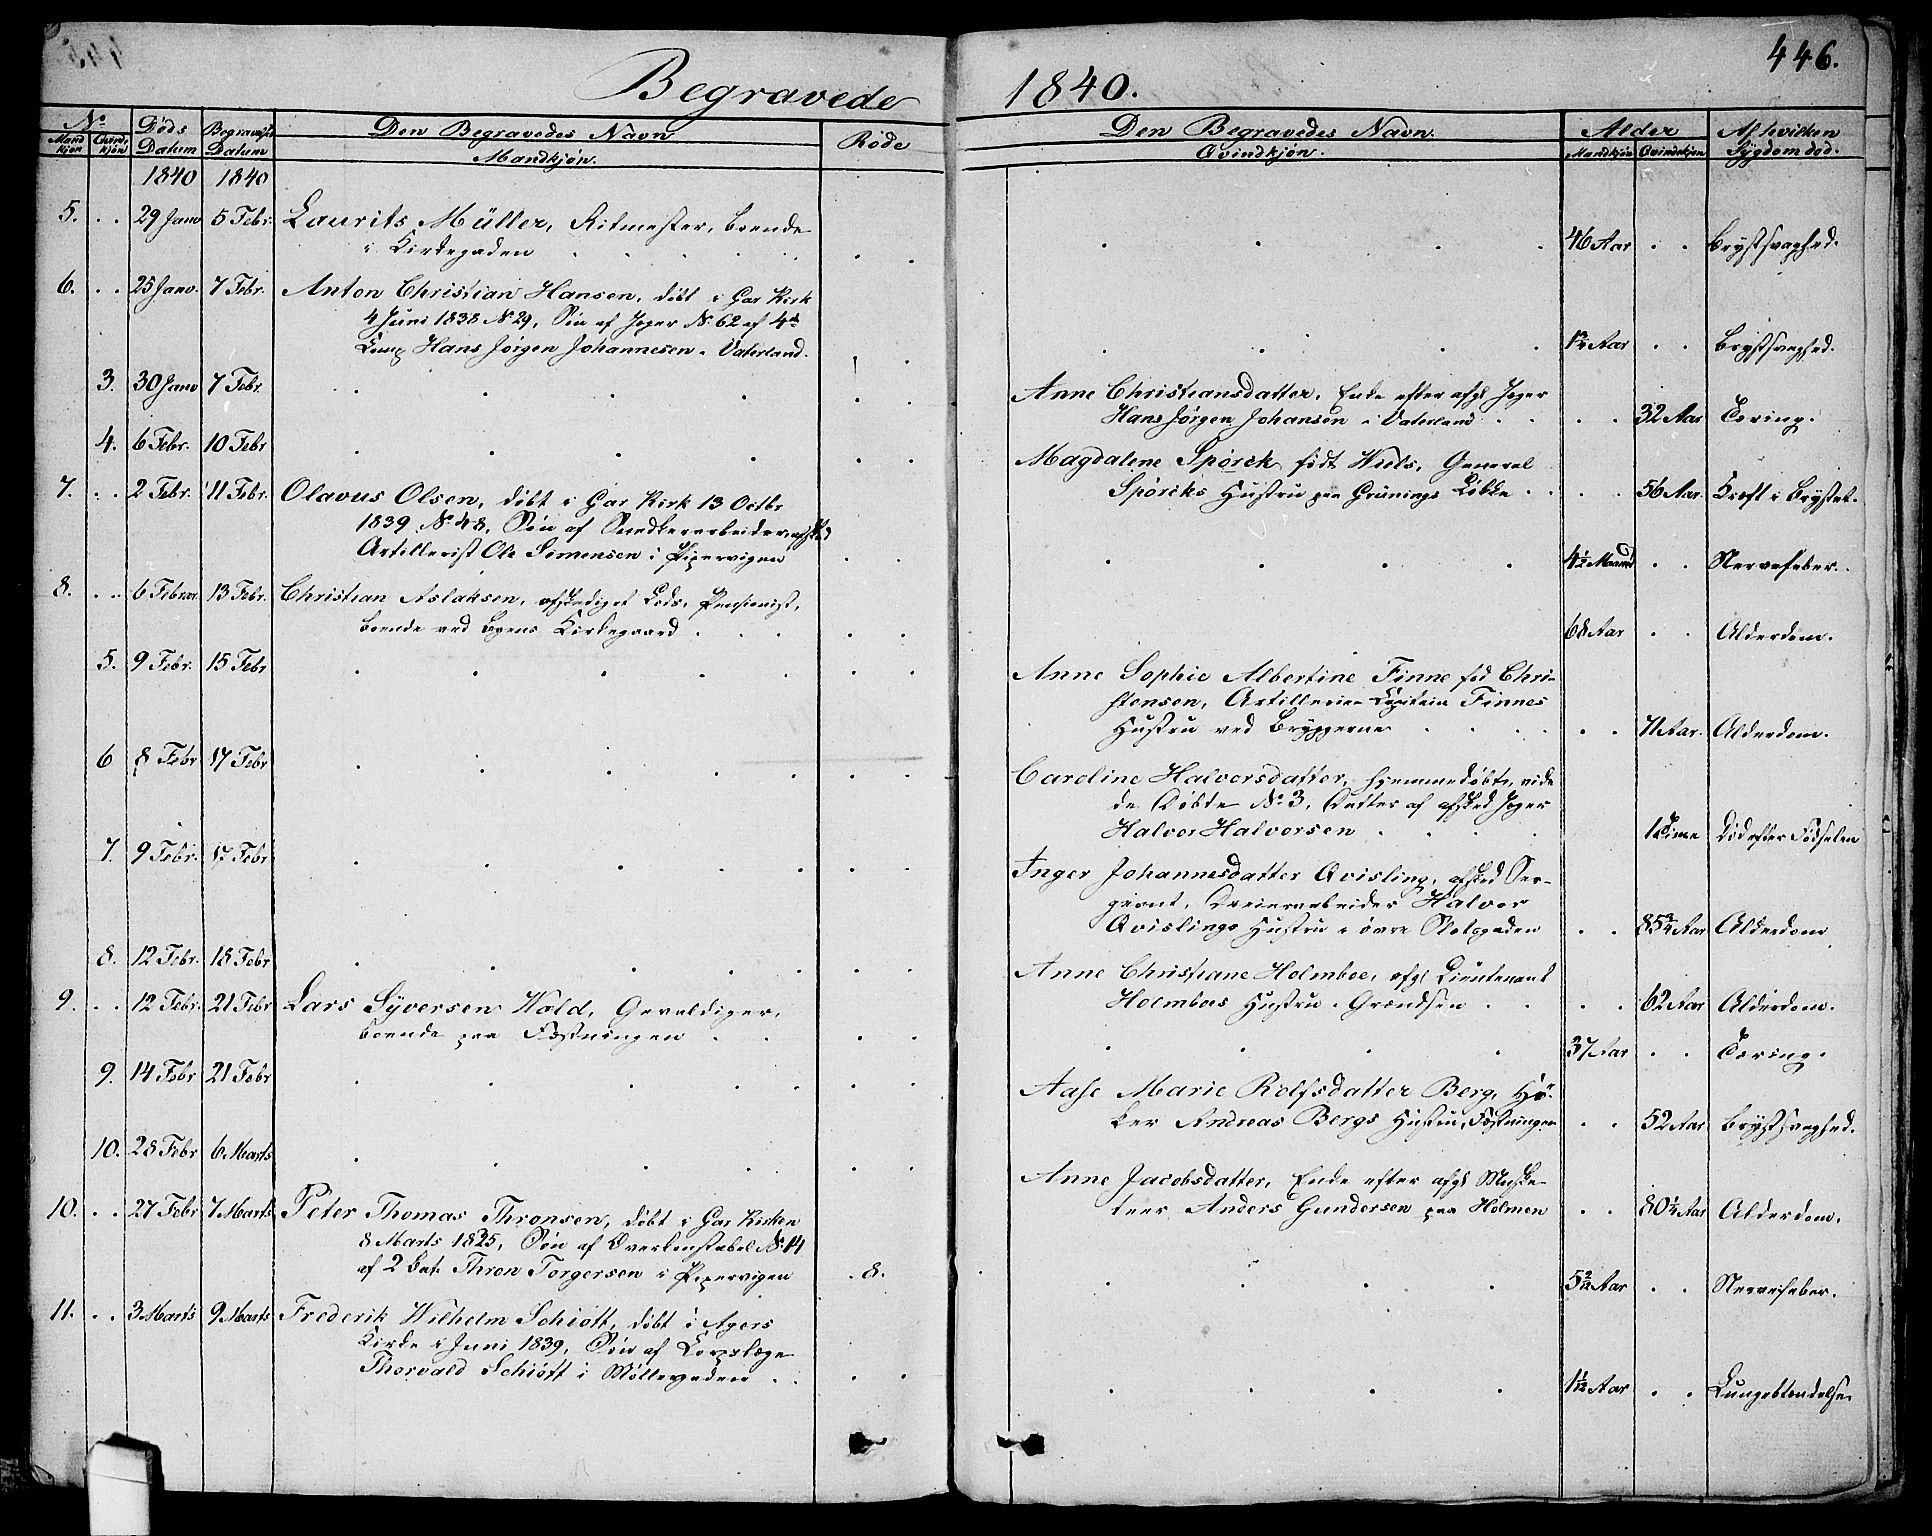 Begravede 1840. 446.
No Døds Datum Begravelses Datum Den Begravedes Navn. Rode Den Begravedes Navn. Alder Af hvilken Sygdom død.
Mandkjøn Qvindkjøn Mandkjøn. Qvindkjøn. Mandkjøn Qvindekjøn
1840 1840
5. . . 29 Janv 5 Febr. Laurits Müller, Ritmester, boende
i Kirkegaden 46 Aar . . Brystsvaghed.
6. . . 25 Janv. 7 Febr. Anton Christian Hansen, døbt i Gar Kirk
4 Juni 1838 No 29, Søn af Jæger No 62 af 4de
Comp Hans Jørgen Johannesen i Vaterland. Aar . . Brystsvaghed.
3. 30 Janv 7 Febr. Anne Christiansdatter, Enke efter afg. Jæger
Hans Jørgen Johansen i Vaterland . . 32 Aar Tæring.
4. 6 Febr. 10 Febr Magdalene Spørck født Niels, General
Spørcks Hustru paa Grünings Løkke . . 56 Aar. Kræft i Brystet.
7. . . 2 Febr. 11 Febr. Olavus Olsen, døbt i Gar Kirk 13 Octbr
1839 No 48, Søn af Snedkerarbeider, afsked
Artillerist Ole Simensen i Pipervigen 4½ Maaned . . Nervefeber.
8. . . 6 Februar 13 Febr. Christian Aslaksen, afskediget Lods, Pensionist,
boende ved Byens Kirkegaard . 68 Aar . . Alderdom.
5. 9 Febr. 15 Febr Anne Sophie Albertine Finne fød Chri-
stensen, Artillerie Capitain Finnes
Hustru ved Bryggerne . . 71 Aar. Alderdom.
6 8 Febr 17 Febr Caroline Halvorsdatter, hjemmedøbt, vide
de Døbte No 3, Datter af afsked Jæger
Halvor Halvorsen . 1 Time Død efter Fødselen
7. 9 Febr. 17 Febr Inger Johannesdatter Qvisling, afsked Ser-
geant, Dreierarbeider Halvor
Qvislings Hustru i øvre Slotsgaden . . 85¾ Aar Alderdom
8. 12 Febr. 18 Febr Anne Christiane Holmboe, afg. Lieutenant
Holmboes Hustru i Grændsen . . 62 Aar Alderdom.
9. . . 12 Febr. 21 Febr Lars Syversen Wold, Gevaldiger,
boende paa Fæstningen . . 37 Aar . . Tæring.
9. 14 Febr 21 Febr Aase Marie Rolfsdatter Berg, Hö-
ker Andreas Bergs Hustru, Fæstningen . . 52 Aar Brystsvaghed.
10. 28 Febr 6 Marts Anne Jacobsdatter, Enke efter afg. Muske-
teer Anders Gundersen paa Holmen . . 80¼ Aar Alderdom.
10. . . 27 Febr 7 Marts Peter Thomas Thronsen, døbt i Gar Kirken
8 Marts 1835, Søn af Overkonstabel No 14
af 2 Bat. Thron Torgersen i Pipervigen . 8. Aar . . Nervefeber.
11. . . 3 Marts 9 Marts Frederik Wilhelm Schiött, døbt i Agers
Kirke i Juni 1839, Søn af Corpslæge
Thorvald Schiött i Møllergaden . . Aar . . Lungebtændelse